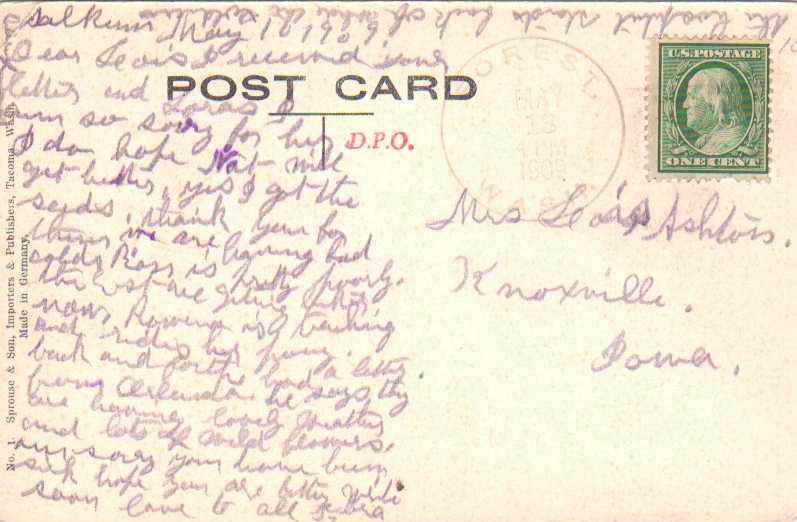 the Hospital stands back of
Salkum May 12 190
Dear Leois I received your
letter and Loras I
am so sorry for her
I do hope Nat will
get better, yes I got the
seeds, thank you for
them we are having bad
colds Ross is pretty poorly.
the rest are
now, Rowena is teaching
and rides her pony.
back and forth had a letter
from Orlando he says they
are having lovely weather
and lots of wild flowers.
am sorry you have been
sick hope you are better write
soon love to all
POST CARD
D.P.O.
FOREST
MAY
13
4 PM
1909
WASH.
U.S. POSTAGE
ONE CENT
Mrs Leois Ashton.
Knoxville.
Iowa.
No. 1. Sprouse & Son, Importers & Publishers, Tacoma, Wash.
Made in Germany.